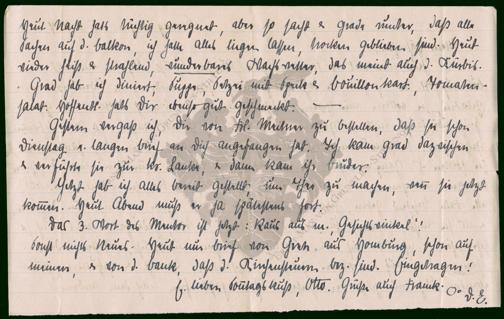 Heut Nacht hats tüchtig geregnet, aber so sacht & grade runter, daß alle
Sachen auf d. Balkon, ich hatte alles liegen lassen, trocken geblieben sind. Heut
wieder heiß & strahlend, wunderbares Wachswetter, das meint auch d. Kürbis.
Grad hab ich diniert: Suppe, mit Speck & Bouillonkart. Tomaten-
salat. Hoffentl. hats Dir ebenso gut geschmeckt.
Gestern vergaß ich Dir von Frl. Meitner zu bestellen, daß sie schon
Dienstag e. langen Brief an Dich angefangen hat. Ich kam grad dazwischen
& verführte sie zur Kr. Lanke, & dann kam ihr Bruder.
Jetzt hab ich Alles bereit gestellt, um Thee zu machen, wenn sie jetzt
kommen. Heut Abend muß ja spätestens fort.
Das 3. Wort des Mentor ist jetzt: Raus aus m. Gesichtswinkel!
Sonst nichts Neues. Heut nur Brief von Grete aus Homburg, schon auf
meinen, & von d. Bank, daß d. Kirchensteuern bez. sind. Eingetragen!
E. lieben Sonntagskuß, Otto. Grüße auch Franck.
D. E.